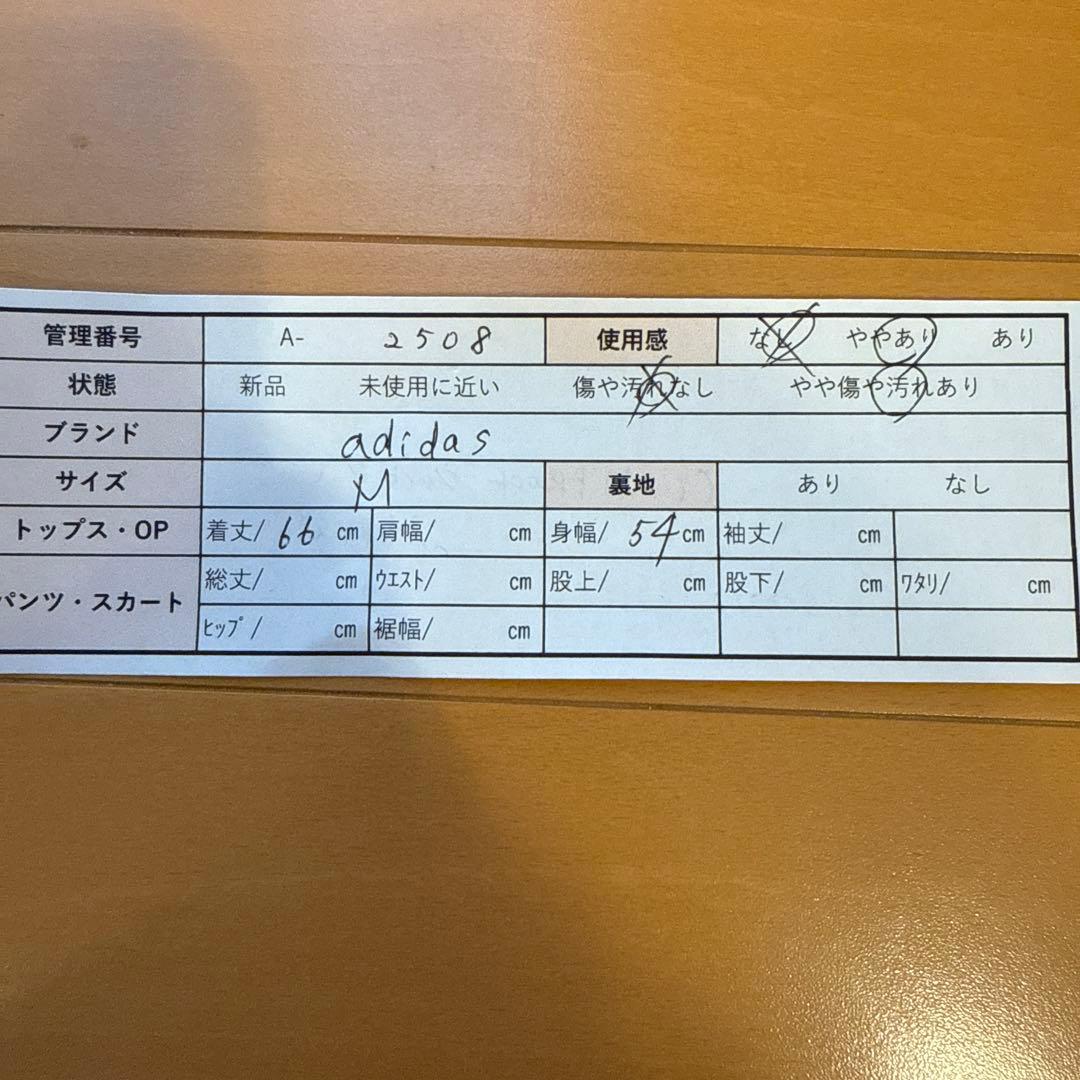 管理番号 A- 2508 使用感 なし ややあり あり
状態 新品 未使用に近い 傷や汚れなし やや傷や汚れあり
ブランド adidas
サイズ M 裏地 あり なし
トップス・OP 着丈/ 66 cm 肩幅/ cm 身幅/ 54 cm 袖丈/ cm
パンツ・スカート 総丈/ cm ｳｴｽﾄ/ cm 股上/ cm 股下/ cm ﾜﾀﾘ/ cm
ﾋｯﾌﾟ/ cm 裾幅/ cm